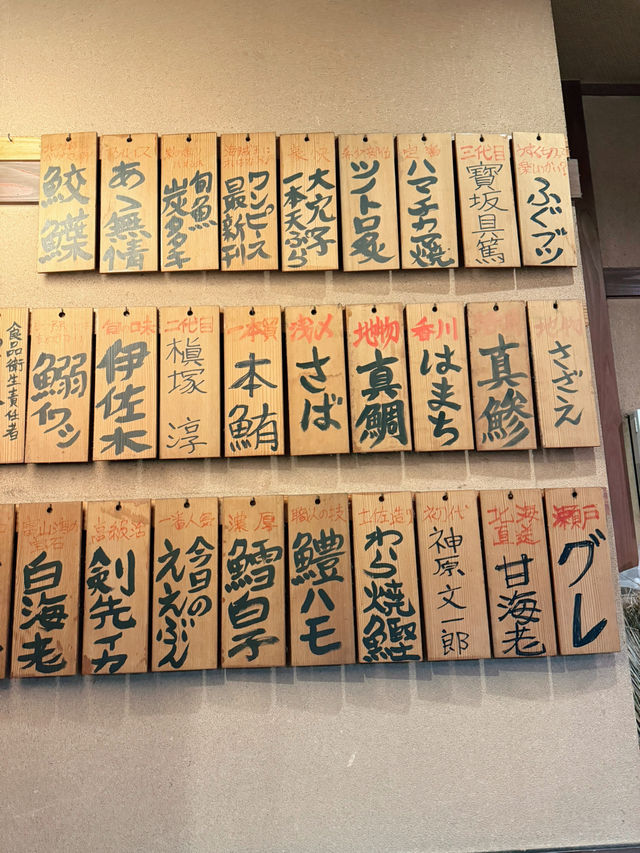 ふぐブツ
三代目
寶坂具篤
大穴子
一本天ぷら
ワンピース
最新刊
旬魚
炭タタキ
あゝ無情
鮫鰈
地物
さざえ
真鯵
香川
はまち
地物
真鯛
浅〆
さば
一本買
本鮪
二代目
槇塚 淳
旬の味
伊佐木
鰯イワシ
食品衛生責任者
瀬戸
グレ
北海
直送
甘海老
初代
神原文一郎
土佐造り
わら焼鰹
職人の技
鱧ハモ
濃厚
鱈白子
一番人気
今日の
ええぶん
高級活
剣先イカ
白海老